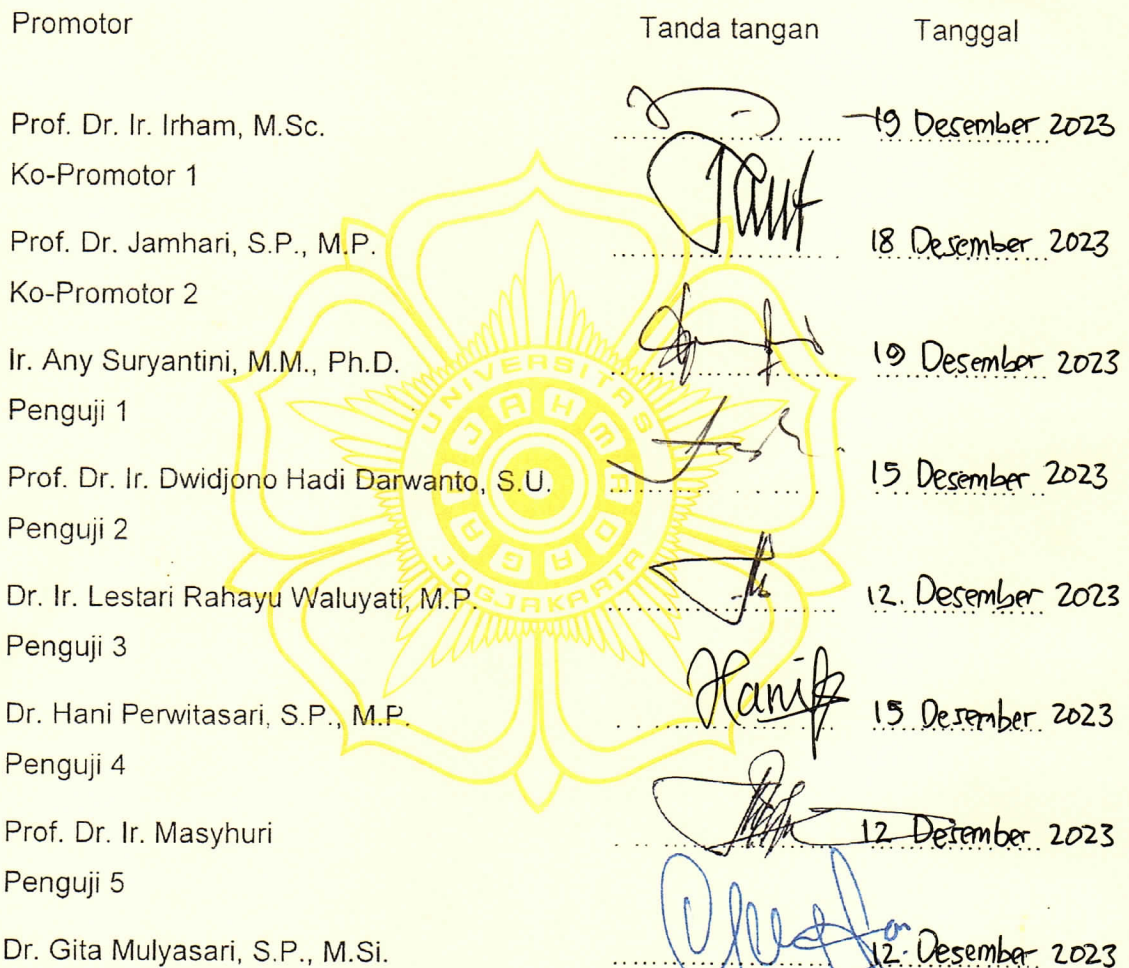 Promotor Tanda tangan Tanggal
Prof. Dr. Ir. Irham, M.Sc. 19 Desember 2023
Ko-Promotor 1
Prof. Dr. Jamhari, S.P., M.P. 18 Desember 2023
Ko-Promotor 2
Ir. Any Suryantini, M.M., Ph.D. 19 Desember 2023
Penguji 1
Prof. Dr. Ir. Dwidjono Hadi Darwanto, S.U. 15 Desember 2023
Penguji 2
Dr. Ir. Lestari Rahayu Waluyati, M.P. 12 Desember 2023
Penguji 3
Dr. Hani Perwitasari, S.P., M.P. 15 Desember 2023
Penguji 4
Prof. Dr. Ir. Masyhuri 12 Desember 2023
Penguji 5
Dr. Gita Mulyasari, S.P., M.Si. 12 Desember 2023
UNIVERSITAS
GADJAH MADA
JOGJAKARTA